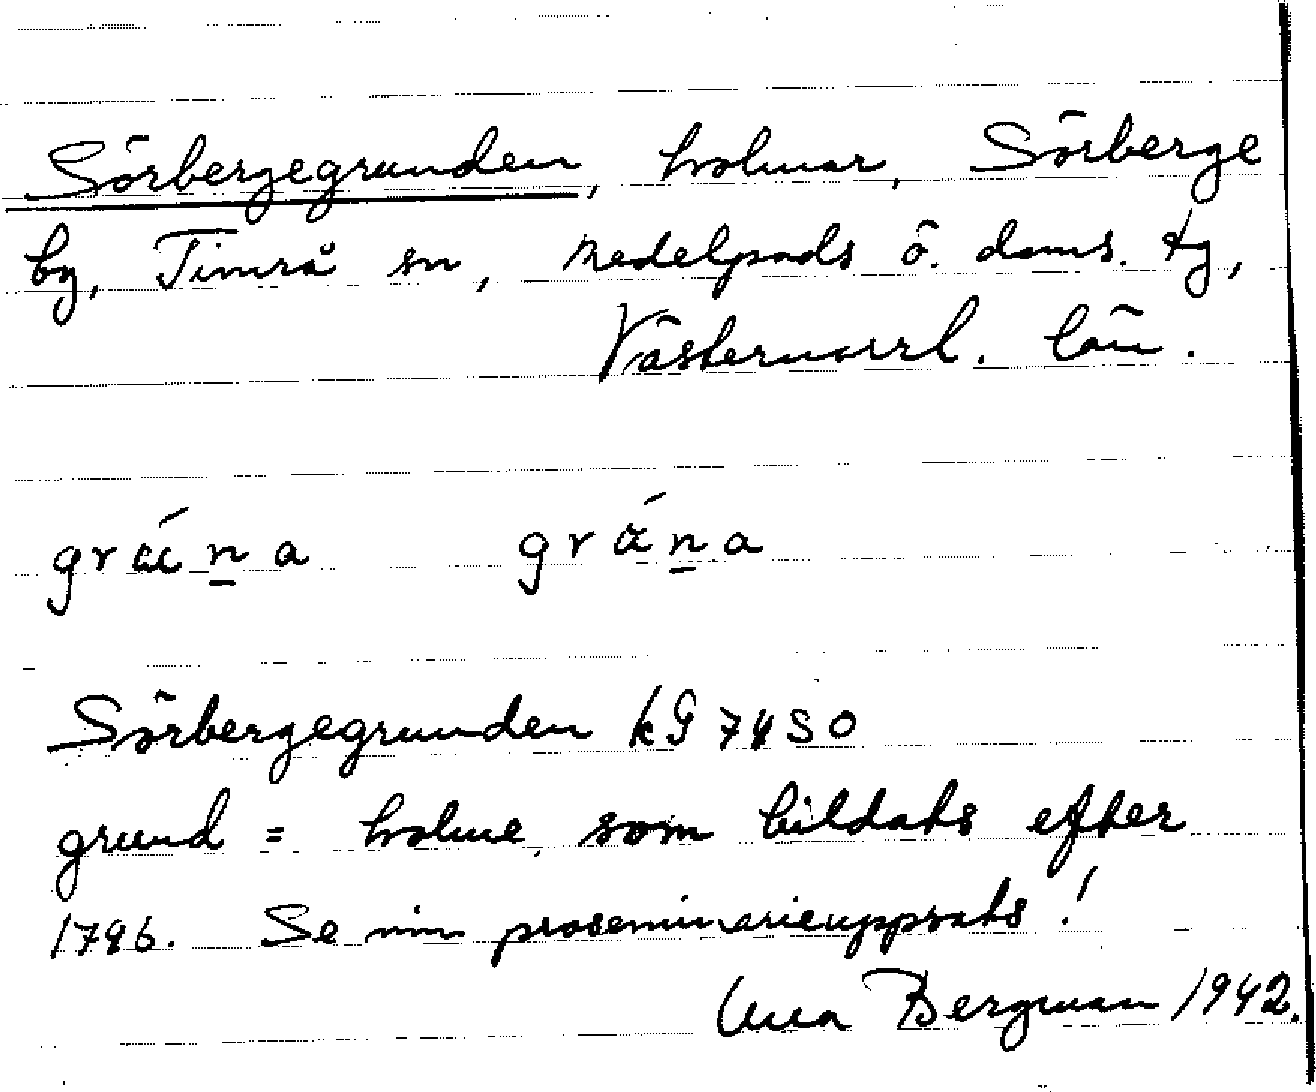 Sörbergegrunden, holmar, Sörberge
by, Timrå sn, Medelpads ö. doms. tg,
Västernorrl. län.
gräna gräna
Sörbergegrunden kG 7450
grund = holme, som bildats efter
1796. Se min proseminarieuppsats!
Bergman 1942.